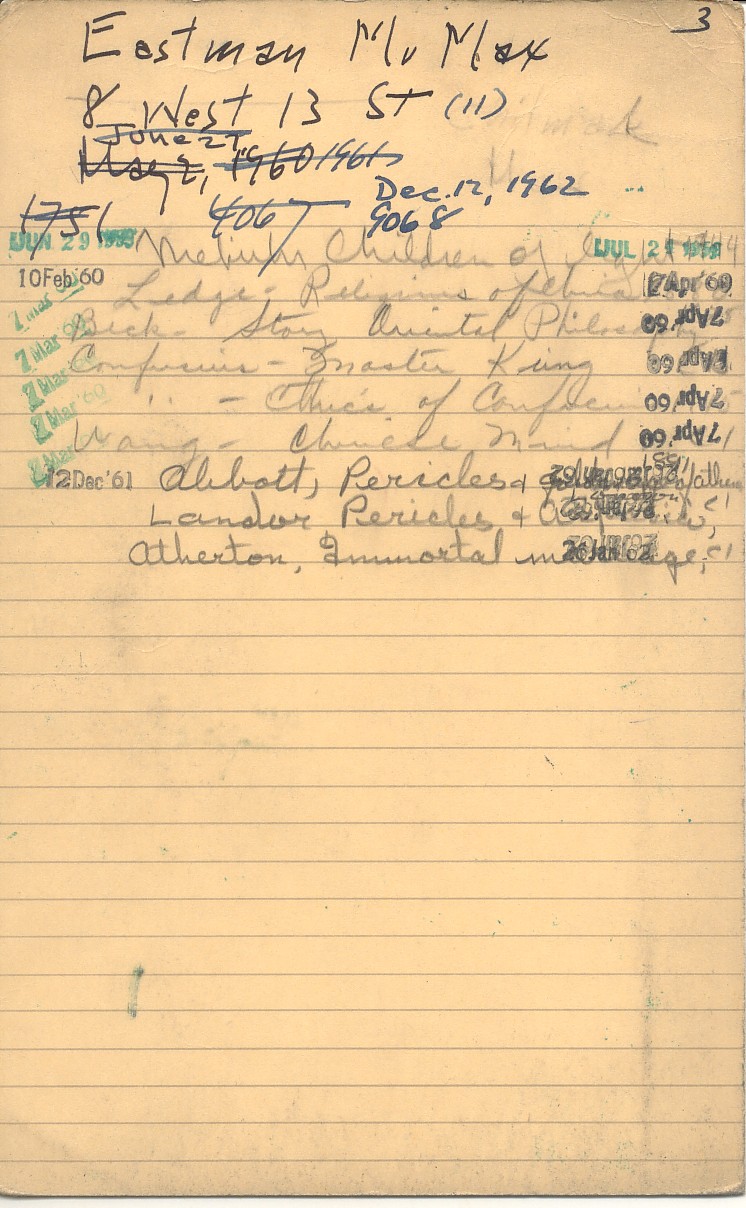 3
Eastman Mr Max
8 West 13 St (11)
June 27
May 2, 1960 1961
Dec. 12, 1962
1751 4067 9068
JUN 29 1959 Children of light JUL 2
10 Feb '60 Legge - Religions of China 7 Apr '60
7 Mar '60 Beck - Story Oriental Philosophy 7 Apr '60
7 Mar '60 Confucius - Master Kung 7 Apr '60
7 Mar '60 " - Ethics of Confucius 7 Apr '60
7 Mar '60 Wang - Chinese Mind 7 Apr '60
12 Dec '61 Abbott, Pericles &
Landor Pericles &
Atherton, Immortal marriage, c1 26 Jan '62